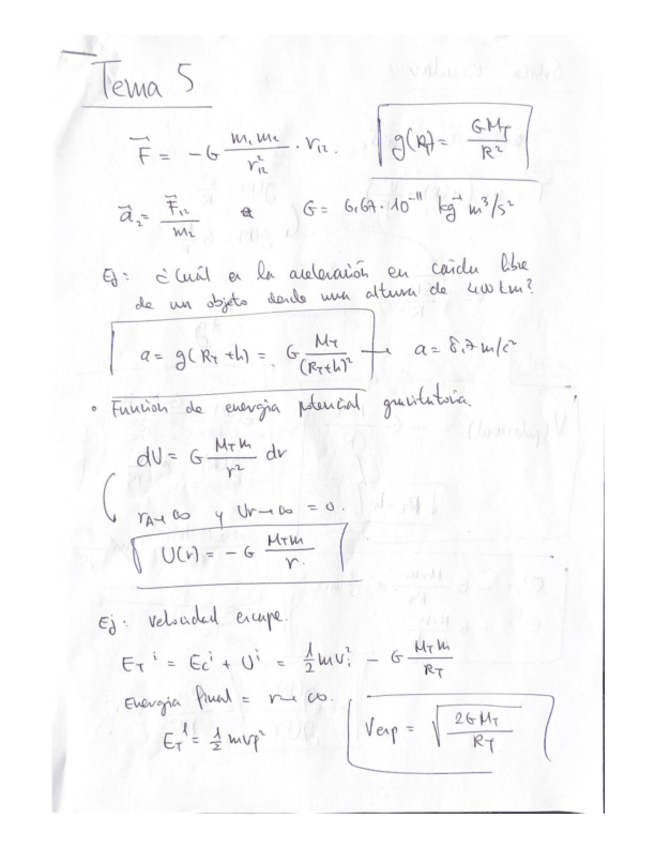 Tema 5
F⃗ = -G m₁m₂/r₁₂² · r₁₂.
g(R_T) = GM_T/R²
a⃗₂ = F⃗₁₂/m₂
G = 6,67·10⁻¹¹ kg⁻¹ m³/s²
Ej: ¿Cuál es la aceleración en caída libre
de un objeto desde una altura de 400 km?
a = g(R_T + h) = G M_T/(R_T+h)² → a = 8,7 m/s²
• Función de energía potencial gravitatoria.
dU = G M_T m/r² dr
r_A→∞ y U r→∞ = 0.
U(r) = -G M_T m/r.
Ej: Velocidad escape.
E_T^i = E_c^i + U^i = 1/2 m v_i² - G M_T m/R_T
Energía final = r→∞.
E_T^f = 1/2 m v_f²
V_esp = √(2GM_T/R_T)